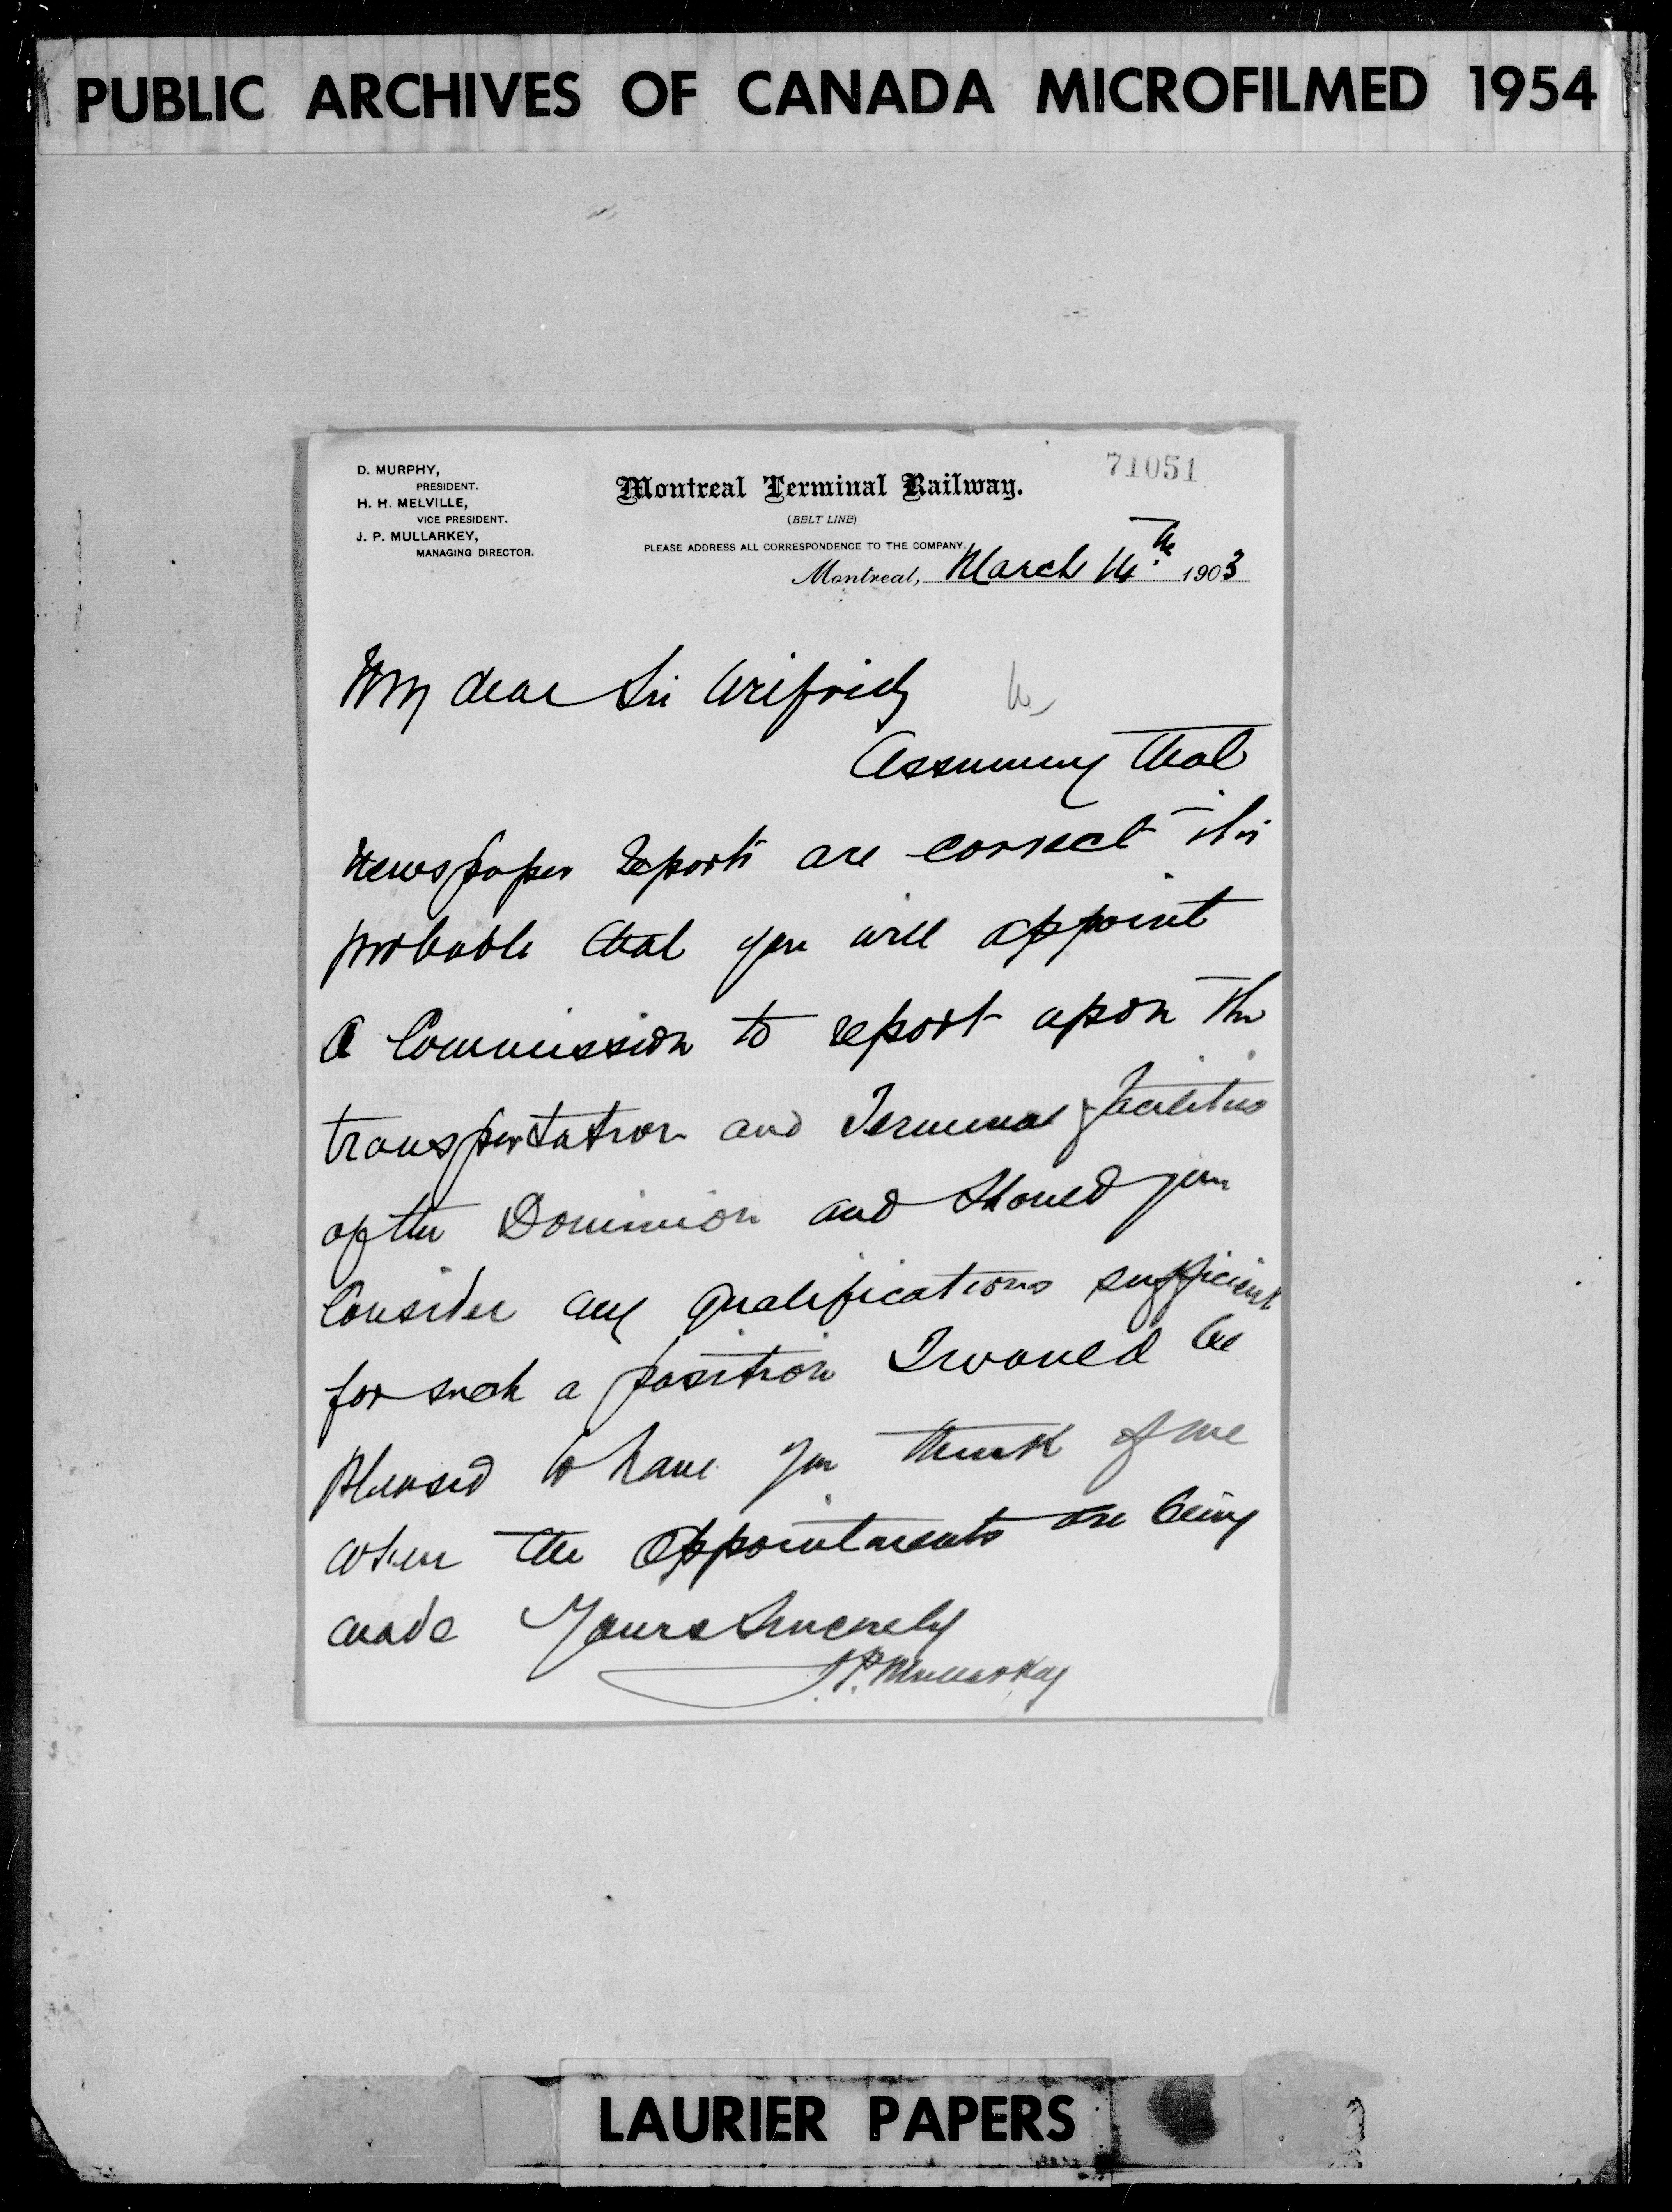 PUBLIC ARCHIVES OF CANADA MICROFILMED 1954
71051
D. MURPHY,
PRESIDENT.
H. H. MELVILLE,
VICE PRESIDENT.
J. P. MULLARKEY,
MANAGING DIRECTOR.
Montreal Terminal Railway.
(BELT LINE)
PLEASE ADDRESS ALL CORRESPONDENCE TO THE COMPANY.
Montreal, March 14th 1903
My dear Sir Wilfrid
Assuming that
newspaper reports are correct it is
probable that you will appoint
a Commission to report upon the
transportation and Terminal facilities
of the Dominion and should you
Consider my qualifications sufficient
for such a position I would be
pleased to have you think of me
when the appointments are being
made Yours Sincerely
J. P. Mullarkey
LAURIER PAPERS